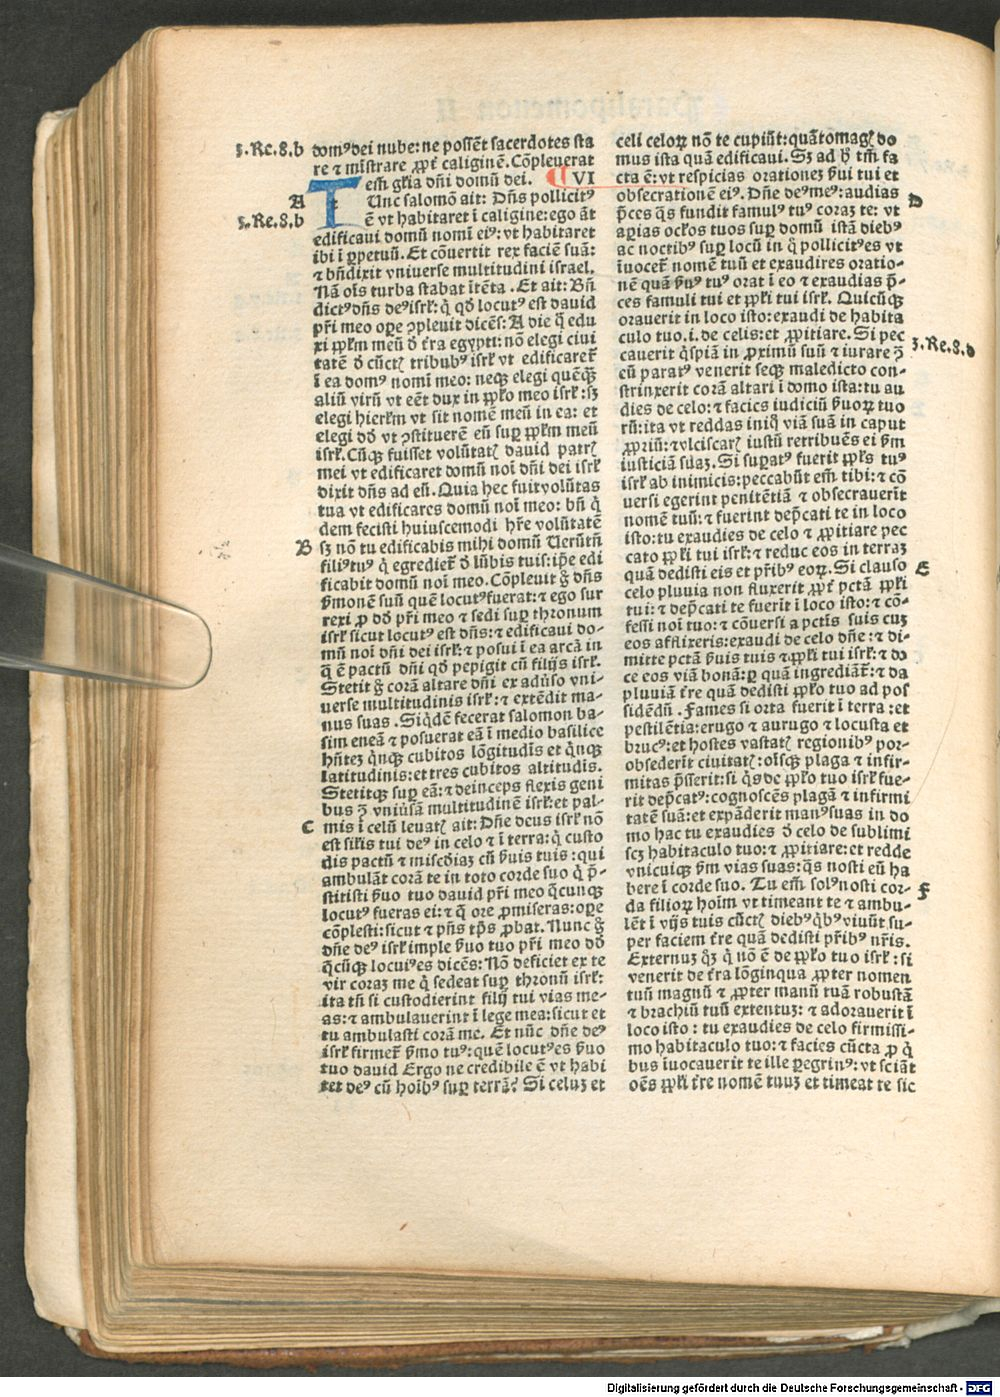 3.Re.8.b
domꝰ dei nube: ne possēt sacerdotes sta
re ⁊ mīstrare ꝓpt̄ caliginē. Cōpleuerat
em̄ gl̄ia dn̄i domū dei. VI
A
TUnc salomō ait: Dn̄s pollicitꝰ
3.Re.8.b
ē vt habitaret ī caligine: ego āt
edificaui domū nomī eiꝰ: vt habitaret
ibi ī ꝑpetuū. Et cōuertit rex faciē suā:
⁊ bn̄dixit vniuerse multitudini israel.
Nā oīs turba stabat ītēta. Et ait: Bn̄
dictꝰ dn̄s deꝰ isrl̄: q̄ qd̄ locutꝰ est dauid
pr̄i meo oꝑe ꝯpleuit dicēs: A die q̄ edu
xi ppl̄m meū d̄ t̄ra egypti: nō elegi ciui
tatē d̄ cūctꝭ tribubꝰ isrl̄ vt edificaret̄
ī ea domꝰ nomī meo: neqꝫ elegi quēqꝫ
aliū virū vt eēt dux in ppl̄o meo isrl̄: sꝫ
elegi hierl̄m vt sit nomē meū in ea: et
elegi dd̄ vt ꝯstituerē eū suꝑ ppl̄m meū
isrl̄. Cūqꝫ fuisset volūtatꝭ dauid patrꝭ
mei vt edificaret domū noī dn̄i dei isrl̄
dixit dn̄s ad eū. Quia hec fuit volūtas
tua vt edificares domū noī meo: bn̄ q̄
dem fecisti huiuscemodi hr̄e volūtatē
B
sꝫ nō tu edificabis mihi domū Uerūtn̄
filiꝰ tuꝰ q̄ egrediet̄ d̄ lūbis tuis: ip̄e edi
ficabit domū noī meo. Cōpleuit g̊ dn̄s
ẜmonē suū quē locutꝰ fuerat: ⁊ ego sur
rexi ꝓ dd̄ pr̄i meo ⁊ sedi suꝑ thronum
isrl̄ sicut locutꝰ est dn̄s: ⁊ edificaui do-
mū noī dn̄i dei isrl̄: ⁊ posui ī ea arcā in
q̄ ē pactū dn̄i qd̄ pepigit cū filijs isrl̄.
Stetit g̊ corā altare dn̄i ex aduꝰso vni-
uerse multitudinis isrl̄: ⁊ extēdit ma-
nus suas. Siq̄dē fecerat salomon ba-
sim eneā ⁊ posuerat eā ī medio basilice
hn̄teꝫ q̄nqꝫ cubitos lōgitudīs et q̄nqꝫ
latitudinis: et tres cubitos altitudis.
Stetitqꝫ suꝑ eā: ⁊ deinceps flexis geni
bus ꝯ̄ vniuꝰsā multitudinē isrl̄: et pal-
C
mis ī celū leuatꝭ ait: Dn̄e deus isrl̄ nō
est sil̄is tui deꝰ in celo ⁊ ī terra: q̄ custo
dis pactū ⁊ mīscd̄iaꝫ cū ẜuis tuis: qui
ambulāt corā te in toto corde suo q̄ p̄-
stitisti ẜuo tuo dauid pr̄i meo q̄cunqꝫ
locutꝰ fueras ei: ⁊ q̄ ore ꝓmiseras: oꝑe
cōplesti: sicut ⁊ pn̄s tp̄s ꝓbat. Nunc g̊
dn̄e deꝰ isrl̄ imple ẜuo tuo pr̄i meo dd̄
q̄cūqꝫ locutꝰ es dicēs: Nō deficiet ex te
vir coraꝫ me q̄ sedeat suꝑ thronū isrl̄:
ita tn̄ si custodierint filij tui vias me-
as: ⁊ ambulauerint ī lege mea: sicut et
tu ambulasti corā me. Et nūc dn̄e deꝰ
isrl̄ firmet̄ ẜmo tuꝰ: quē locutꝰ es ẜuo
tuo dauid Ergo ne credibile ē vt habi
tet deꝰ cū hoībꝰ suꝑ terrā? Si celuꝫ et
celi celoꝝ nō te capiūt: quātomagꝭ do
mus ista quā edificaui. Sꝫ ad h̄ tm̄ fa
cta ē: vt respicias orationeꝫ ẜui tui et
obsecrationē eiꝰ. Dn̄e deꝰ meꝰ: audias
D
p̄ces q̄s fundit famulꝰ tuꝰ coraꝫ te: vt
aꝑias ocl̄os tuos suꝑ domū istā diebꝰ
ac noctibꝰ suꝑ locū in q̄ pollicitꝰ es vt
īuocet̄ nomē tuū et exaudires oratio-
nē quā ẜuꝰ tuꝰ orat ī eo ⁊ exaudias p̄-
ces famuli tui et ppl̄i tui isrl̄. Quicūqꝫ
orauerit in loco isto: exaudi de habita
culo tuo .i. de celis: et ꝓpitiare. Si pec
3.Re.8.d
cauerit q̄spiā in ꝓximū suū ⁊ iurare ꝯ̄
eū paratꝰ venerit seqꝫ maledicto con-
strinxerit corā altari ī domo ista: tu au
dies de celo: ⁊ facies iudiciū ẜuoꝝ tuo
rū: ita vt reddas iniq̄ viā suā in caput
ꝓpriū: ⁊ vlciscarꝭ iustū retribuēs ei ẜm
iusticiā suaꝫ. Si suꝑatꝰ fuerit ppl̄s tuꝰ
isrl̄ ab inimicis: peccabūt em̄ tibi: ⁊ cō
uersi egerint penitētiā ⁊ obsecrauerīt
nomē tuū: ⁊ fuerint dep̄cati te in loco
isto: tu exaudies de celo ⁊ ꝓpitiare pec
cato ppl̄i tui isrl̄: ⁊ reduc eos in terraꝫ
quā dedisti eis et pr̄ibꝰ eoꝝ. Si clauso
E
celo pluuia non fluxerit ꝓpt̄ pctā ppl̄i
tui: ⁊ dep̄cati te fuerīt ī loco isto: ⁊ cō-
fessi noī tuo: ⁊ cōuersi a pctīs suis cuꝫ
eos afflixeris: exaudi de celo dn̄e: ⁊ di-
mitte pctā ẜuis tuis ⁊ ppl̄i tui isrl̄: ⁊ do
ce eos viā bonā: ꝑ quā ingrediāt̄: ⁊ da
pluuiā t̄re quā dedisti ppl̄o tuo ad pos
sidēdū. Fames si orta fuerit ī terra: et
pestilētia: erugo ⁊ aurugo ⁊ locusta et
brucꝰ: et hostes vastatꝭ regionibꝰ por-
obsederīt ciuitatꝭ: oīsqꝫ plaga ⁊ infir-
mitas p̄sserit: si q̄s de ppl̄o tuo isrl̄ fue-
rit dep̄catꝰ: cognoscēs plagā ⁊ infirmi
tatē suā: et expāderit manꝰ suas in do
mo hac tu exaudies d̄ celo de sublimi
scꝫ habitaculo tuo: ⁊ ꝓpitiare: et redde
vnicuiqꝫ ẜm vias suas: q̄s nosti eū ha
bere ī corde suo. Tu em̄ solꝰ nosti cor-
F
da filioꝝ hoīm vt timeant te ⁊ ambu-
lēt ī vijs tuis cūctꝭ diebꝰ q̄bꝰ viuūt su-
per faciem t̄re quā dedisti pr̄ibꝰ nr̄is.
Externuꝫ q̄ꝫ q̄ nō ē de ppl̄o tuo isrl̄: si
venerit de t̄ra lōginqua ꝓpter nomen
tuū magnū ⁊ ꝓpter manū tuā robustā
⁊ brachiū tuū extentuꝫ: ⁊ adorauerit ī
loco isto: tu exaudies de celo firmissi-
mo habitaculo tuo: ⁊ facies cūcta ꝓ q̄
bus īuocauerit te ille ꝑegrinꝰ: vt sciāt
oēs ppl̄i t̄re nomē tuuꝫ et timeat te sic
Digitalisierung gefördert durch die Deutsche Forschungsgemeinschaft - DFG